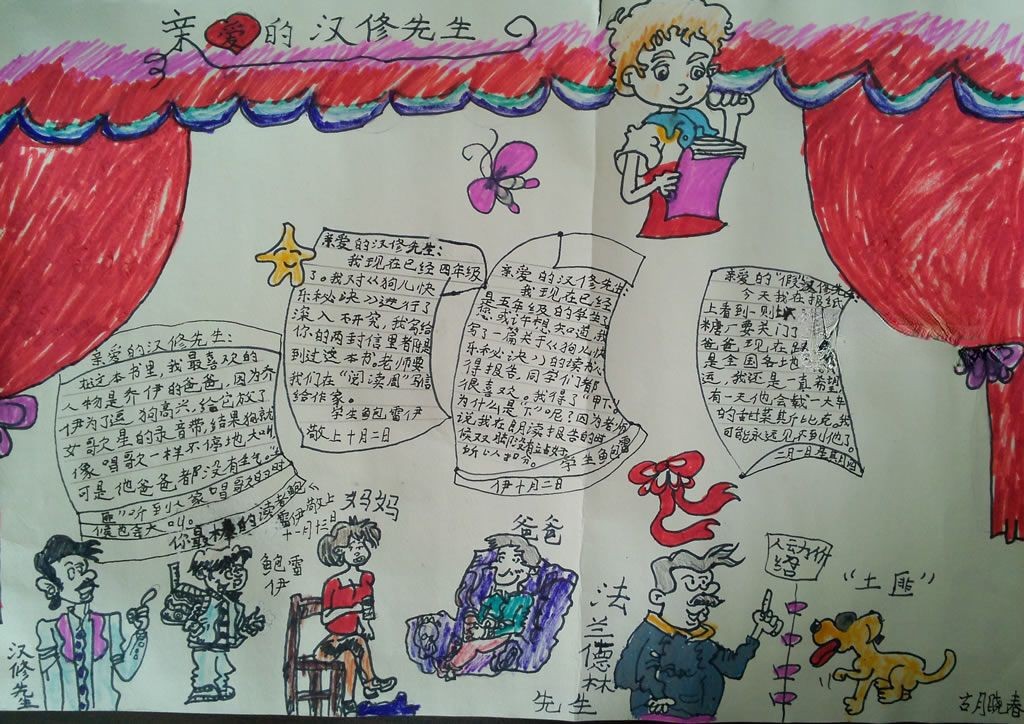 亲爱的汉修先生
亲爱的汉修先生:
我现在已经四年级
了。我对《狗儿快
乐秘诀》进行了
深入研究,我寄给
你的两封信里都
到过这本书。老师要
我们在“阅读周”写信
给作家。
学生鲍雷伊
敬上十月二日
亲爱的汉修先生:
我现在已经
是五年级的学生
写了一篇关于《狗儿快
乐秘诀》的读
得报告,同学们都
很喜欢。我得了“甲下”。
为什么是“下”呢?因为老师
说我在朗读报告的时
候双脚没有站好
所以扣分。学生鲍雷
伊十月二日
亲爱的“假”汉修先生:
今天我在报纸
上看到一则
糖厂要关门了
爸爸现在
是全国各地
远,我还是一直希望
有一天他会载一大车
的甜菜
可能永远见不到他了
二月一日星期四
亲爱的汉修先生:
在这本书里,我最喜欢的
人物是乔伊的爸爸,因为乔
伊为了逗狗高兴,给它放了
女歌星的录音带,结果狗就
像唱歌一样不停地大叫
可是他爸爸都没有生气。
听到人家唱歌的时
候也会大叫。
你最棒的读者鲍
雷伊敬上
十一月十三日
妈妈
鲍雷
伊
爸爸
法兰德林
先生
人动份
“土匪”
汉修先生
古月晓春